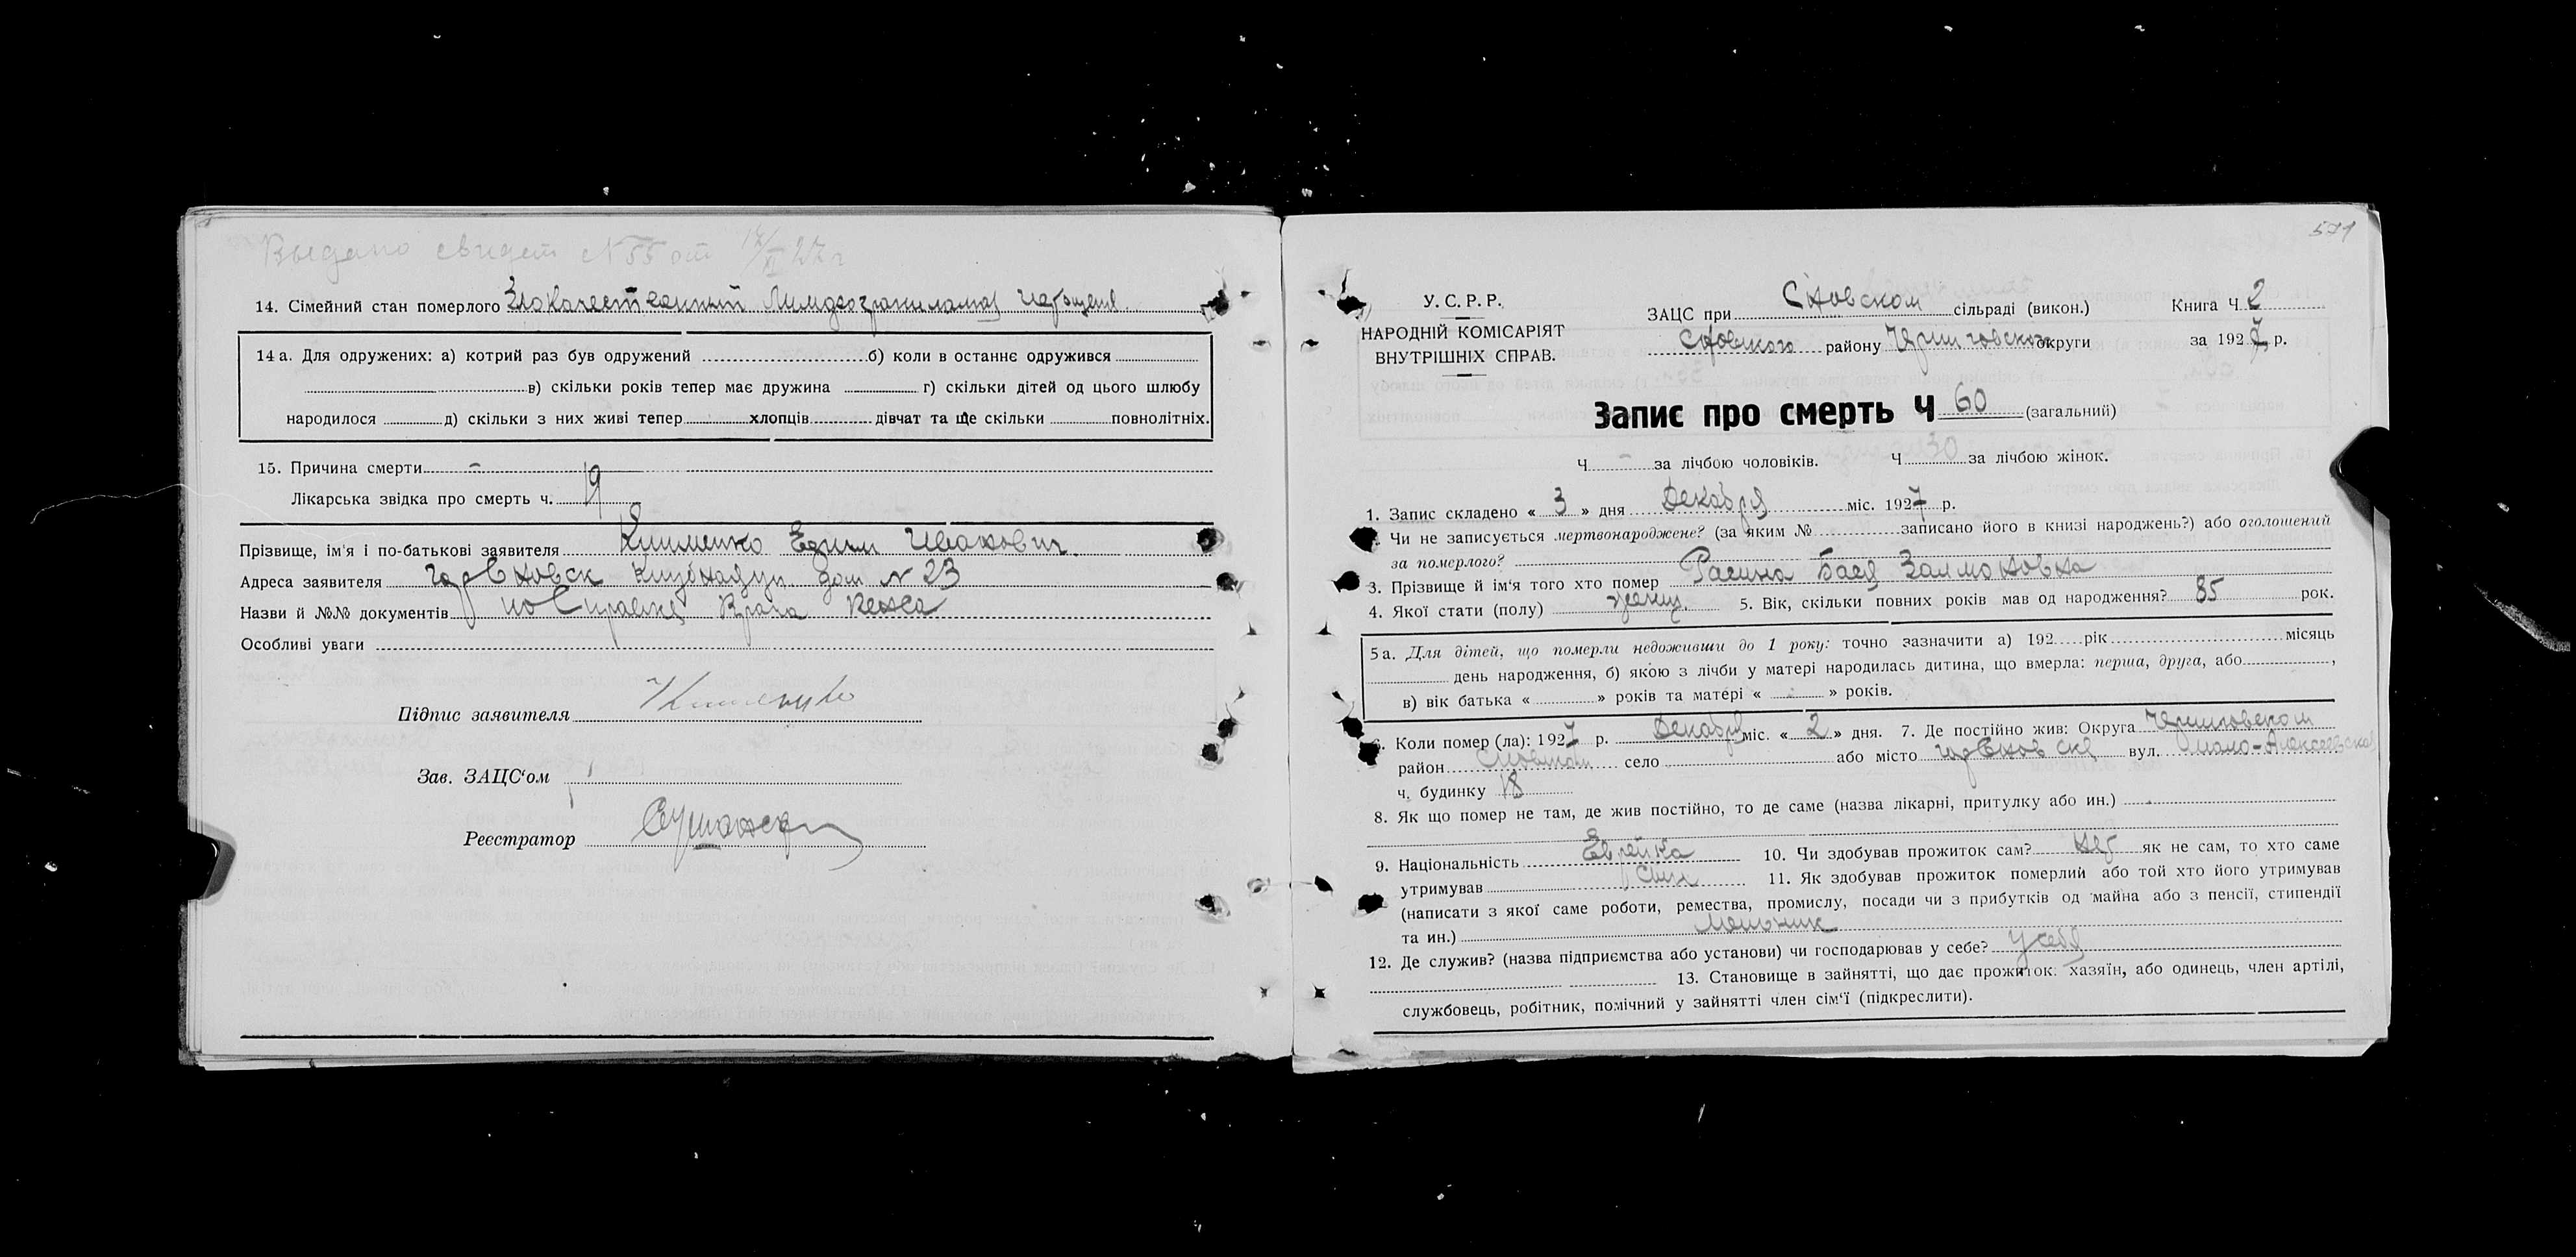 Выдано свидет N 55 от 17/XII 27 г
14. Сімейний стан померлого Злокачественный Лимфогрануломаз
14 а. Для одружених: а) котрий раз був одружений б) коли в останнє одружився
в) скільки років тепер має дружина г) скільки дітей од цього шлюбу
народилося д) скільки з них живі тепер хлопців дівчат та ще скільки повнолітніх.
15. Причина смерти –
Лікарська звідка про смерть ч. 19
Прізвище, ім'я і по-батькові заявителя Клименко Ефим Иванович.
Адреса заявителя гор Сновск дом N 23
Назви й №№ документів по Справке Врача
Особливі уваги
Підпис заявителя Клименко
Зав. ЗАЦС'ом
Реєстратор
571
У. С. Р. Р.
НАРОДНІЙ КОМІСАРІЯТ
ВНУТРІШНІХ СПРАВ.
ЗАЦС при Сновском сільраді (викон.) Книга Ч. 2
Сновского району Черниговской округи за 1927 р.
Запис про смерть Ч 60 (загальний)
Ч – за лічбою чоловіків. Ч 30 за лічбою жінок.
1. Запис складено « 3 » дня Декабря міс. 1927 р.
2. Чи не записується мертвонароджене? (за яким № записано його в книзі народжень?) або оголошений
за померлого?
3. Прізвище й ім'я того хто помер Расина Бася Залмановна
4. Якої стати (полу) женщ. 5. Вік, скільки повних років мав од народження? 85 рок.
5 а. Для дітей, що померли недоживши до 1 року: точно зазначити а) 192 рік місяць
день народження, б) якою з лічби у матері народилась дитина, що вмерла: перша, друга, або ,
в) вік батька « » років та матері « » років.
6. Коли помер (ла): 1927 р. Декабря міс. « 2 » дня. 7. Де постійно жив: Округа Черниговском
район Сновском село або місто гор Сновске вул. Мало-Алексеевская
ч. будинку 18
8. Як що помер не там, де жив постійно, то де саме (назва лікарні, притулку або ин.)
9. Національність Еврейка 10. Чи здобував прожиток сам? нет як не сам, то хто саме
утримував Сын 11. Як здобував прожиток померлий або той хто його утримував
(написати з якої саме роботи, ремества, промислу, посади чи з прибутків од майна або з пенсії, стипендії
та ин.)
12. Де служив? (назва підприємства або установи) чи господарював у себе? у себя
13. Становище в зайнятті, що дає прожиток: хазяїн, або одинець, член артілі,
службовець, робітник, помічний у зайнятті член сім'ї (підкреслити).